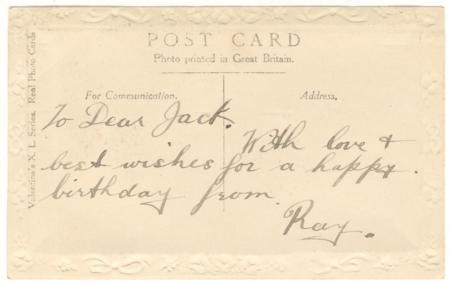 POST CARD
Photo printed in Great Britain.
For Communication.
Address.
Valentine's X. L. Series. Real Photo Cards
To Dear Jack.
With love &
best wishes for a happy.
birthday from
Ray.